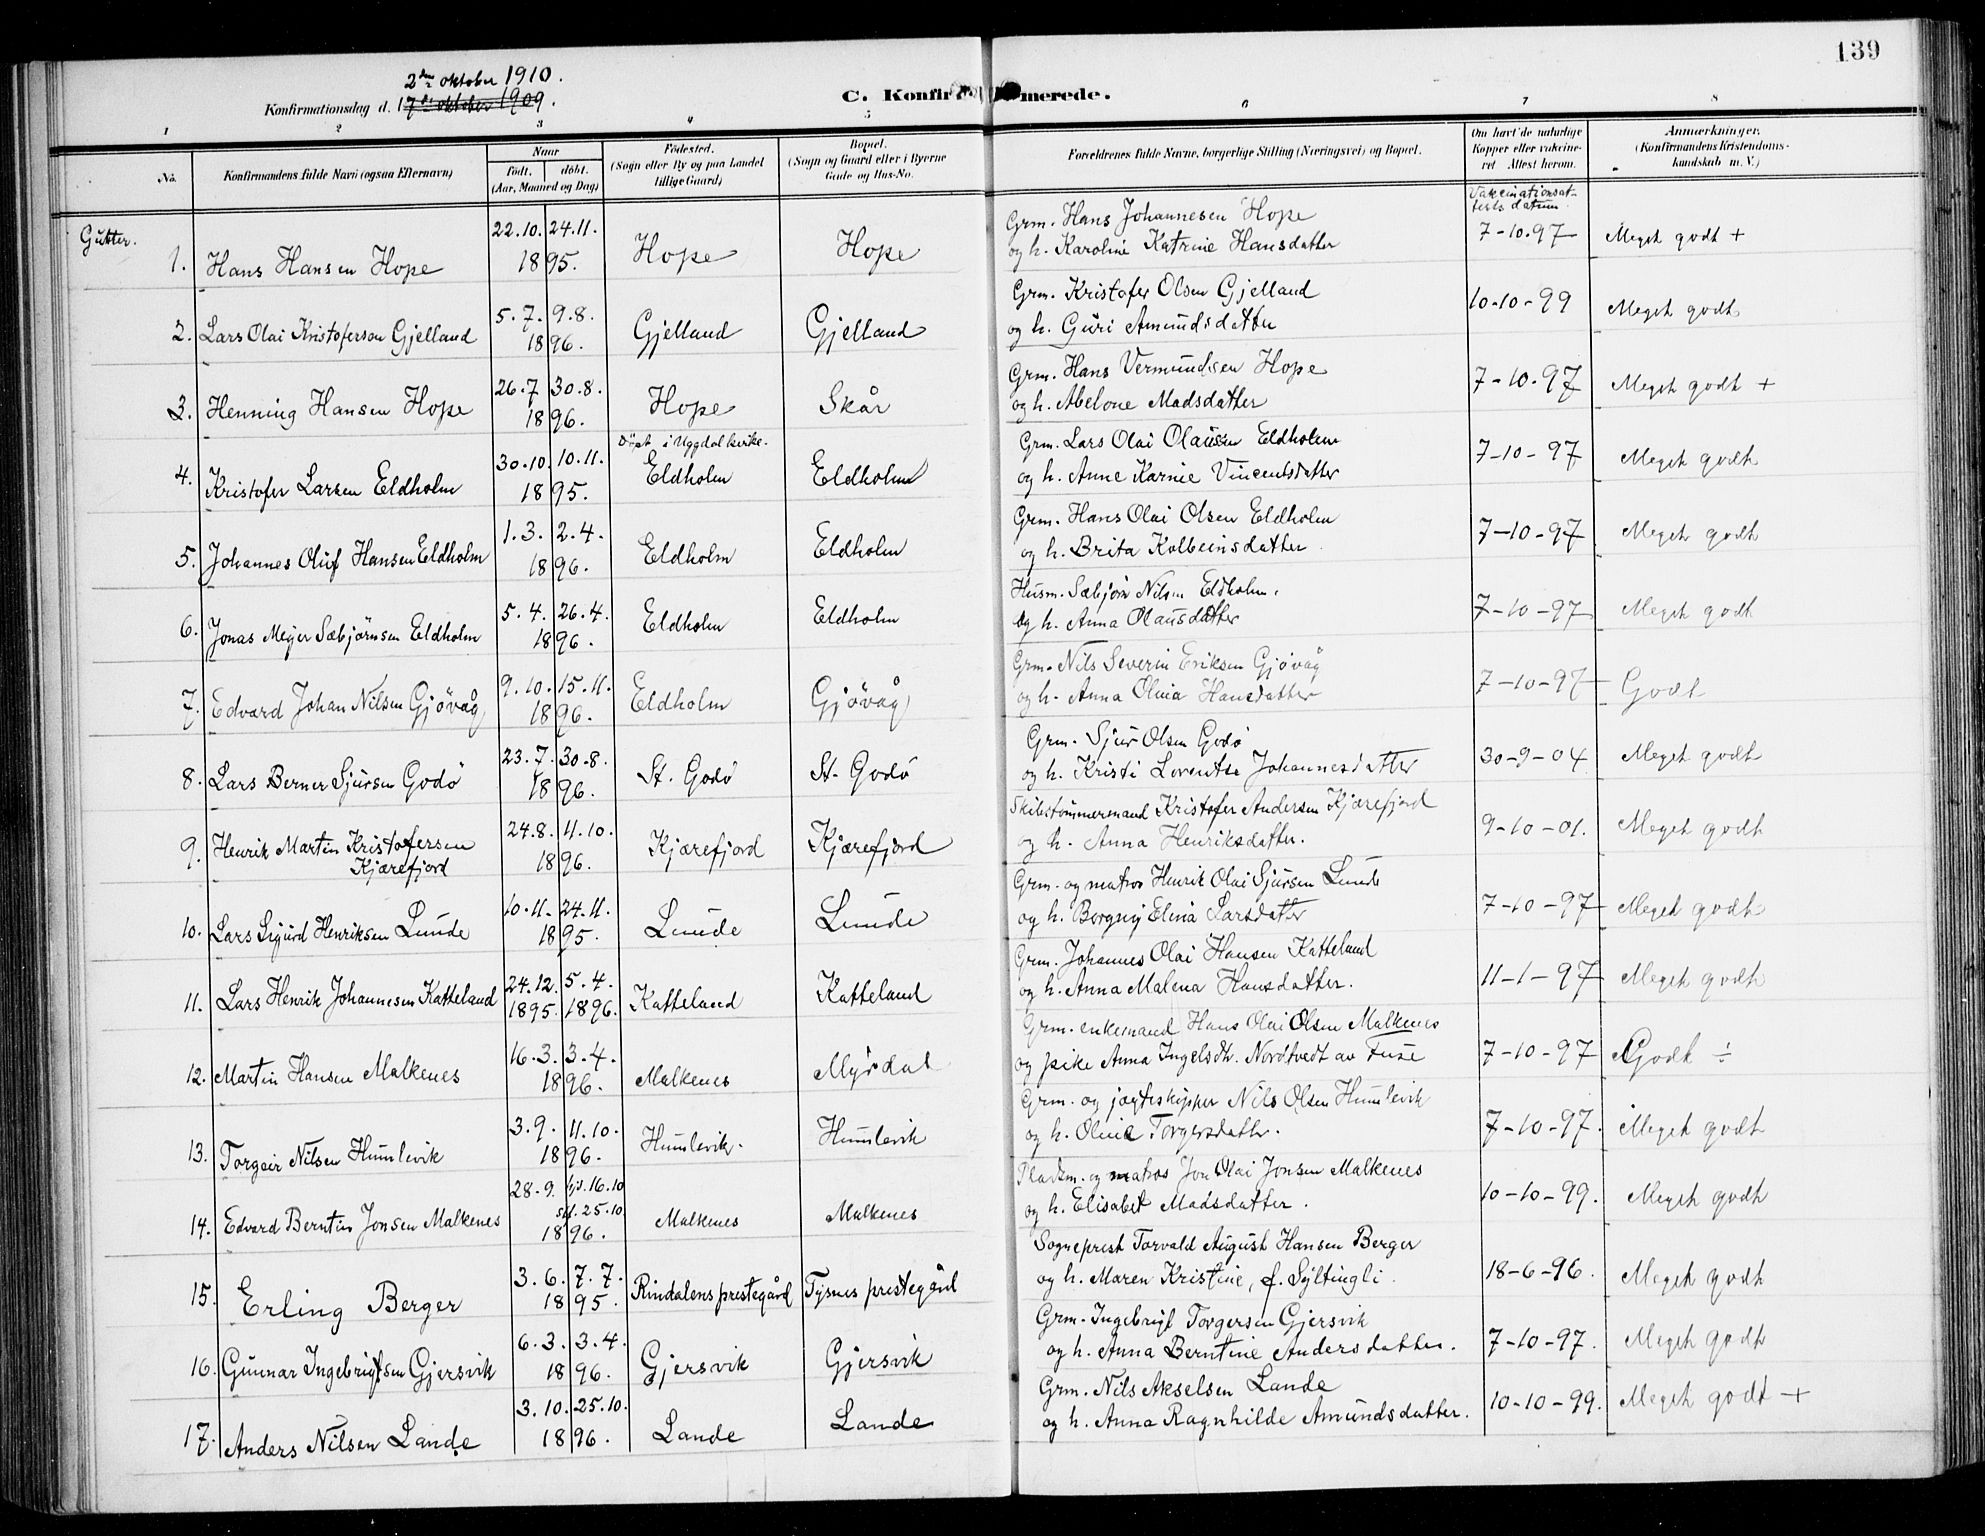 139
2den oktober 1910.
Konfirmationsdag d. 17de oktober 1909.
C. Konfirmerede.
1 2 3 4 5 6 7 8
No.
Konfirmandens fulde Navn (ogsaa Efternavn)
Naar
födt. döbt.
(Aar, Maaned og Dag)
Födested.
(Sogn eller By og paa Landet
tillige Gaard)
Bopæl.
(Sogn og Gaard eller i Byerne
Gade og Hus-No.
Forældrenes fulde Navne, borgerlige Stilling (Næringsvei) og Bopæl.
Om havt de naturlige
Kopper eller vaksine-
ret Attest herom.
Anmærkninger.
(Konfirmandens Kristendoms-
kundskab m. V.)
Vakcinationsat-
tests datum.
Gutter.
1. Hans Hansen Hope 22.10. 24.11. 1895. Hope Hope
Grm. Hans Johannesen Hope
og h. Karoline Katrine Hansdatter 7-10-97 Meget godt +
2. Lars Olai Kristoferson Gjelland 5.7. 9.8. 1896. Gjelland Gjelland
Grm. Kristofer Olsen Gjelland
og h. Guri Amundsdatter 10-10-99 Meget godt
3. Henning Hansen Hope 26.7 30.8. 1896. Hope Skår
Grm. Hans Vermundsen Hope
og h. Abelone Madsdatter 7-10-97 Meget godt +
4. Kristofer Larsen Eldholm 30.10. 10.11. 1895. Döpt i Uggdal kirke. Eldholm Eldholm
Grm. Lars Olai Olaussen Eldholm
og h. Anne Karine Vincentsdatter 7-10-97 Meget godt
5. Johannes Oluf Hansen Eldholm 1.3. 2.4. 1896. Eldholm Eldholm
Grm. Hans Olai Olsen Eldholm
og h. Brita Kolbeinsdatter 7-10-97 Meget godt
6. Jonas Mejer Sæbjørnsen Eldholm 5.4. 26.4. 1896. Eldholm Eldholm
Husm. Sæbjørn Nilsen Eldholm.
og h. Anna Olausdatter 7-10-97 Meget godt
7. Edvard Johan Nilsen Gjövåg 9.10. 15.11. 1896. Eldholm Gjövåg
Grm. Nils Severin Eriksen Gjövåg
og h. Anna Olina Hansdatter 7-10-97 Godt
8. Lars Berner Sjursen Godö 23.7. 30.8. 1896. St. Godö St. Godö
Grm. Sjur Olsen Godö
og h. Kristi Lorentse Johannesdatter 30-9-04 Meget godt
9. Henrik Martin Kristofersen
Kjærefjord 24.8. 11.10. 1896. Kjærefjord Kjærefjord
Skibstømmermand Kristofer Andersen Kjærefjord
og h. Anna Henriksdatter. 9-10-01. Meget godt
10. Lars Sigurd Henriksen Lunde 10.11. 24.11. 1895. Lunde Lunde
Grm. og matros Henrik Olai Sjursen Lunde
og h. Borgny Elina Larsdatter 7-10-97 Meget godt
11. Lars Henrik Johannesen Katteland 24.12. 5.4. 1895. 1896. Katteland Katteland
Grm. Johannes Olai Hansen Katteland
og h. Anna Malena Hansdatter. 11-1-97 Meget godt
12. Martin Hansen Malkenes 16.3. 3.4. 1896. Malkenes Myrdal
Grm. enkemand Hans Olai Olsen Malkenes
og pike Anna Ingelsdtr. Nordtvedt av Fuse 7-10-97 Godt ÷
13. Torgeir Nilsen Humlevik 3.9. 11.10. 1896. Humlevik. Humlevik
Grm. og jægteskipper Nils Olsen Humlevik
og h. Olina Torgersdatter. 7-10-97. Meget godt
14. Edvard Berntin Jonsen Malkenes 28.9. hjd. 16.10 stf. 25.10 1896. Malkenes Malkenes
Pladsm. og matros Jon Olai Jonsen Malkenes
og h. Elisabet Madsdatter. 10-10-99. Meget godt
15. Erling Berger 3.6. 7.7. 1895. Rindalens prestegård Tysnes prestegård
Sogneprest Torvald August Hansen Berger
og h. Maren Kristine, f. Syltingli. 18-6-96. Meget godt
16. Gunnar Ingebrigtsen Gjersvik 6.3. 3.4. 1896. Gjersvik Gjersvik
Grm. Ingebrigt Torgersen Gjersvik
og h. Anna Berntine Andersdatter. 7-10-97. Meget godt
17. Anders Nilsen Lande 3.10. 25.10. 1896. Lande Lande
Grm. Nils Akselsen Lande
og h. Anna Ragnhilde Amundsdatter. 10-10-99. Meget godt +